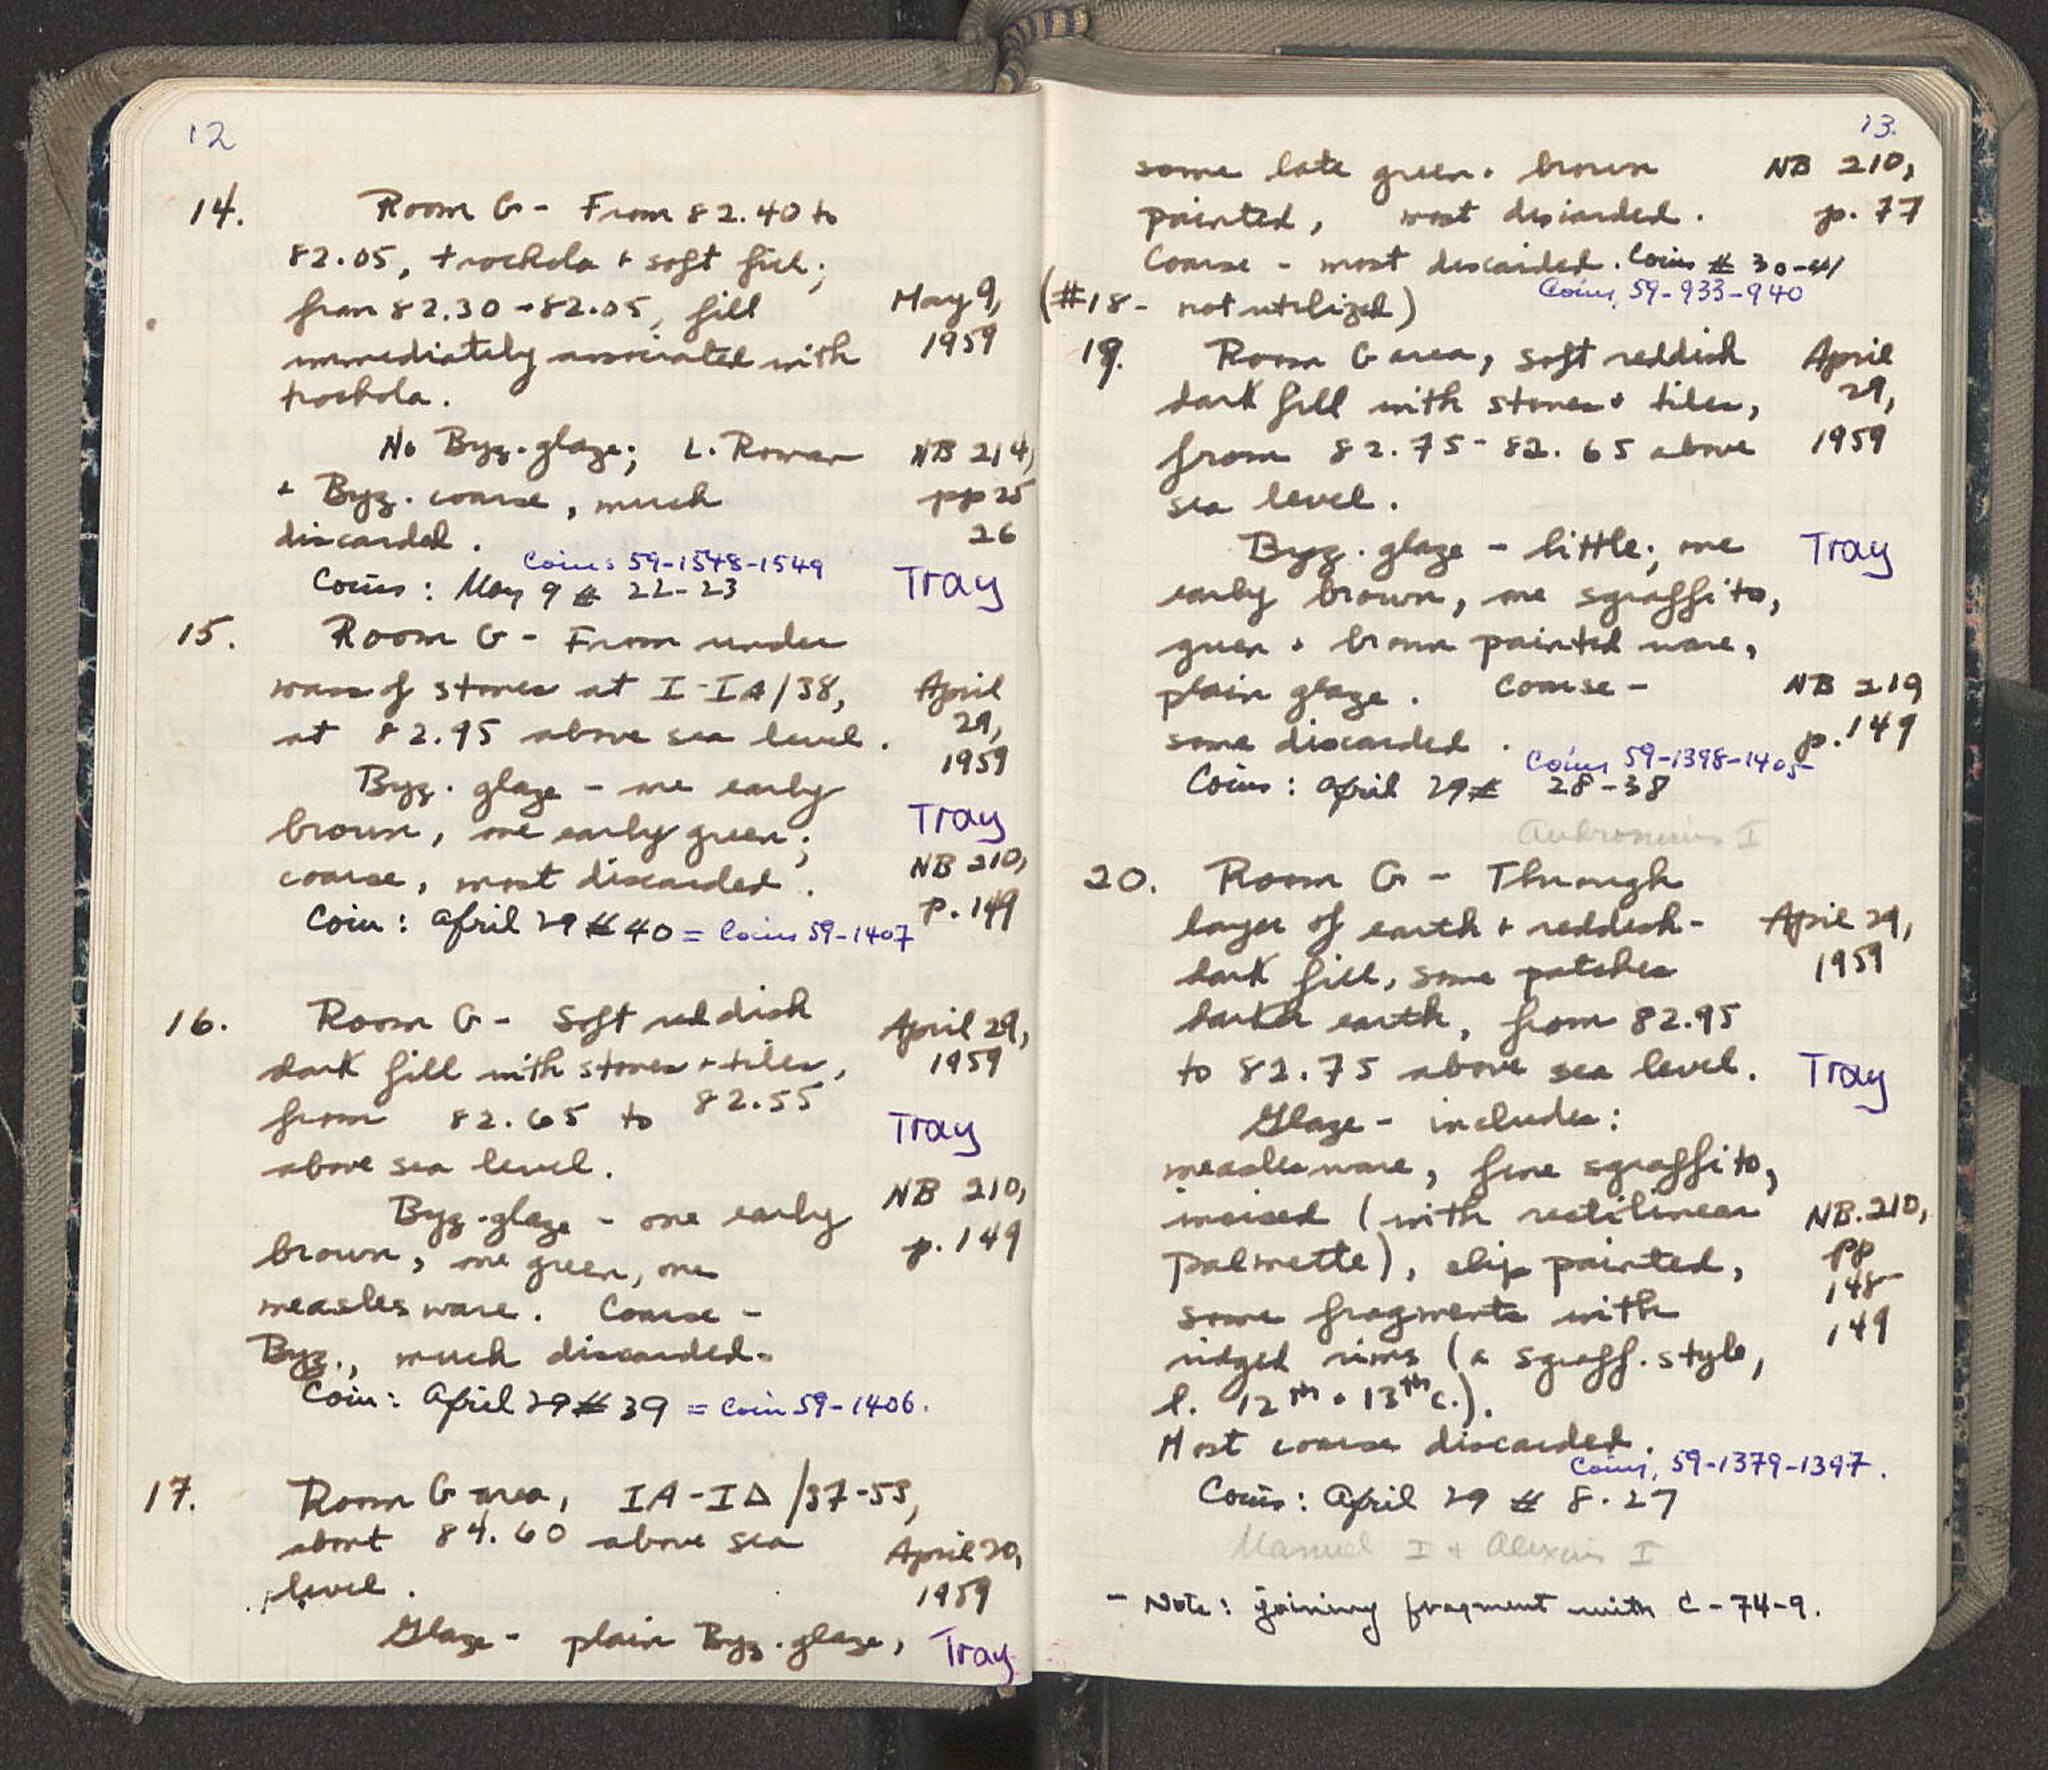 12
14. Room G - From 82.40 to
82.05, trochola + soft fill;
from 82.30 - 82.05, fill
May 9,
immediately associated with
1959
trochola.
No Byz. glaze; L. Roman
NB 214,
+ Byz. coarse, much
pp 25
discarded.
26
Coins 59-1548-1549
Coins: May 9 # 22-23
Tray
15. Room G - From under
mass of stones at I-IA/38,
April
at 82.95 above sea level.
29,
1959
Byz. glaze - one early
brown, one early green;
Tray
coarse, most discarded.
NB 210,
p. 149
Coin: April 29 # 40 = Coins 59-1407
16. Room G - Soft reddish
April 29,
dark fill with stones + tiles,
1959
from 82.65 to 82.55
above sea level.
Tray
Byz. glaze - one early
NB 210,
brown, one green, one
p. 149
measles ware. Coarse -
Byz., much discarded.
Coin: April 29 # 39 = Coin 59-1406.
17. Room G area, IA-IΔ/37-53,
about 84.60 above sea
April 20,
level.
1959
Glaze - plain Byz. glaze,
Tray
13.
some late green + brown
NB 210,
painted, most discarded.
p. 77
Coarse - most discarded. Coins # 30-41
Coins, 59-933-940
(#18 - not utilized)
19. Room G area, soft reddish
April
dark fill with stones + tiles,
29,
from 82.75 - 82.65 above
1959
sea level.
Byz. glaze - little; one
Tray
early brown, one sgraffito,
green + brown painted ware,
plain glaze. Coarse -
NB 219
some discarded.
p. 149
Coins 59-1398-1405
Coins: April 29 # 28-38
Andronicus I
20. Room G - Through
layer of earth + reddish-
April 29,
dark fill, some patches
1959
darker earth, from 82.95
to 82.75 above sea level.
Tray
Glaze - includes:
measles ware, fine sgraffito,
incised (with rectilinear
NB. 210,
palmette), slip painted,
pp
148-
some fragments with
149
ridged rims (a sgraff. style,
l. 12th + 13th c.).
Most coarse discarded.
Coins, 59-1379-1397.
Coins: April 29 # 8-27
Manuel I + Alexius I
- Note: joining fragment with C-74-9.